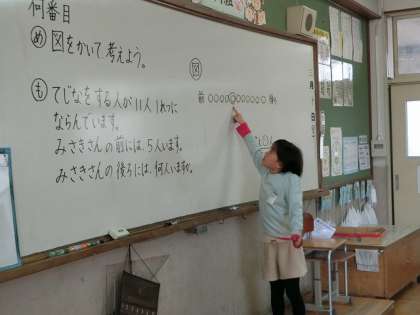 何番目
め 図をかいて、考えよう。
も てじなをする人が11人1れつに
ならんでいます。
みさきさんの前には、5人います。
みさきさんの後ろには、何人いますか。
図
前 ○○○○○○○○○○○ 後ろ